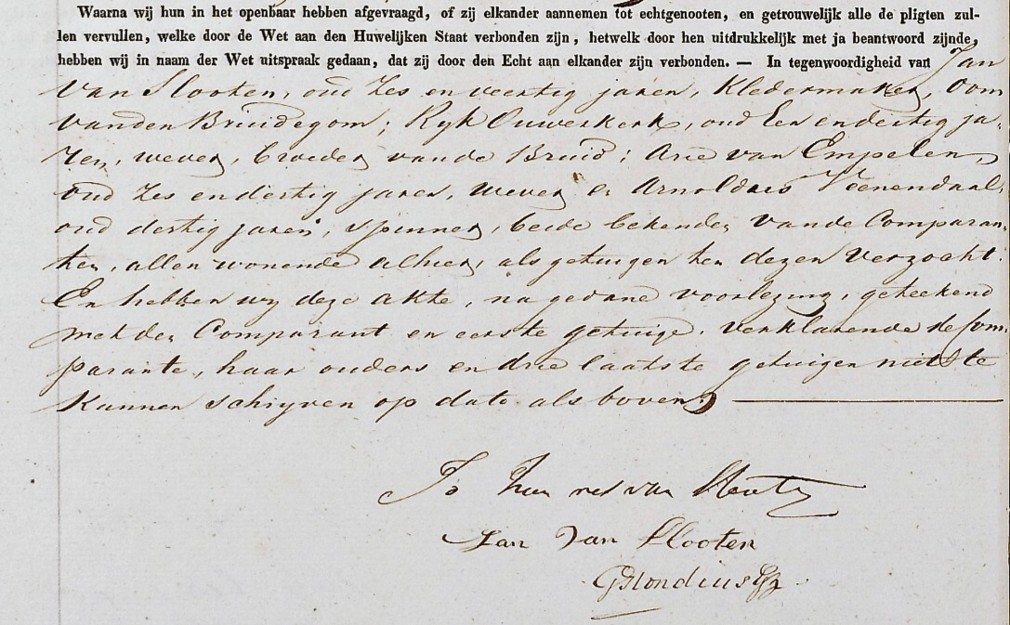 Waarna wij hun in het openbaar hebben afgevraagd, of zij elkander aannemen tot echtgenooten, en getrouwelijk alle de pligten zul-
len vervullen, welke door de Wet aan den Huwelijken Staat verbonden zijn, hetwelk door hen uitdrukkelijk met ja beantwoord zijnde,
hebben wij in naam der Wet uitspraak gedaan, dat zij door den Echt aan elkander zijn verbonden. — In tegenwoordigheid van Jan
van Slooten, oud Zes en veertig jaren, Kledermaker, Oom
van den Bruidegom; Ryk Ouwerkerk, oud Een en dertig ja-
ren, wever, broeder van de Bruid; Arie van Empelen,
oud Zes en dertig jaren, wever en Arnoldus Veenendaal,
oud dertig jaren, spinner, beide bekenden van de Comparan-
ten, allen wonende alhier, als getuigen ten dezen verzocht.
En hebben wy deze akte, na gedane voorlezing, geteekend
met den Comparant en eerste getuige, verklarende de Com-
parante, haar ouders en drie laatste getuigen niet te
kunnen schryven op dato als boven.
van
Jan van Slooten